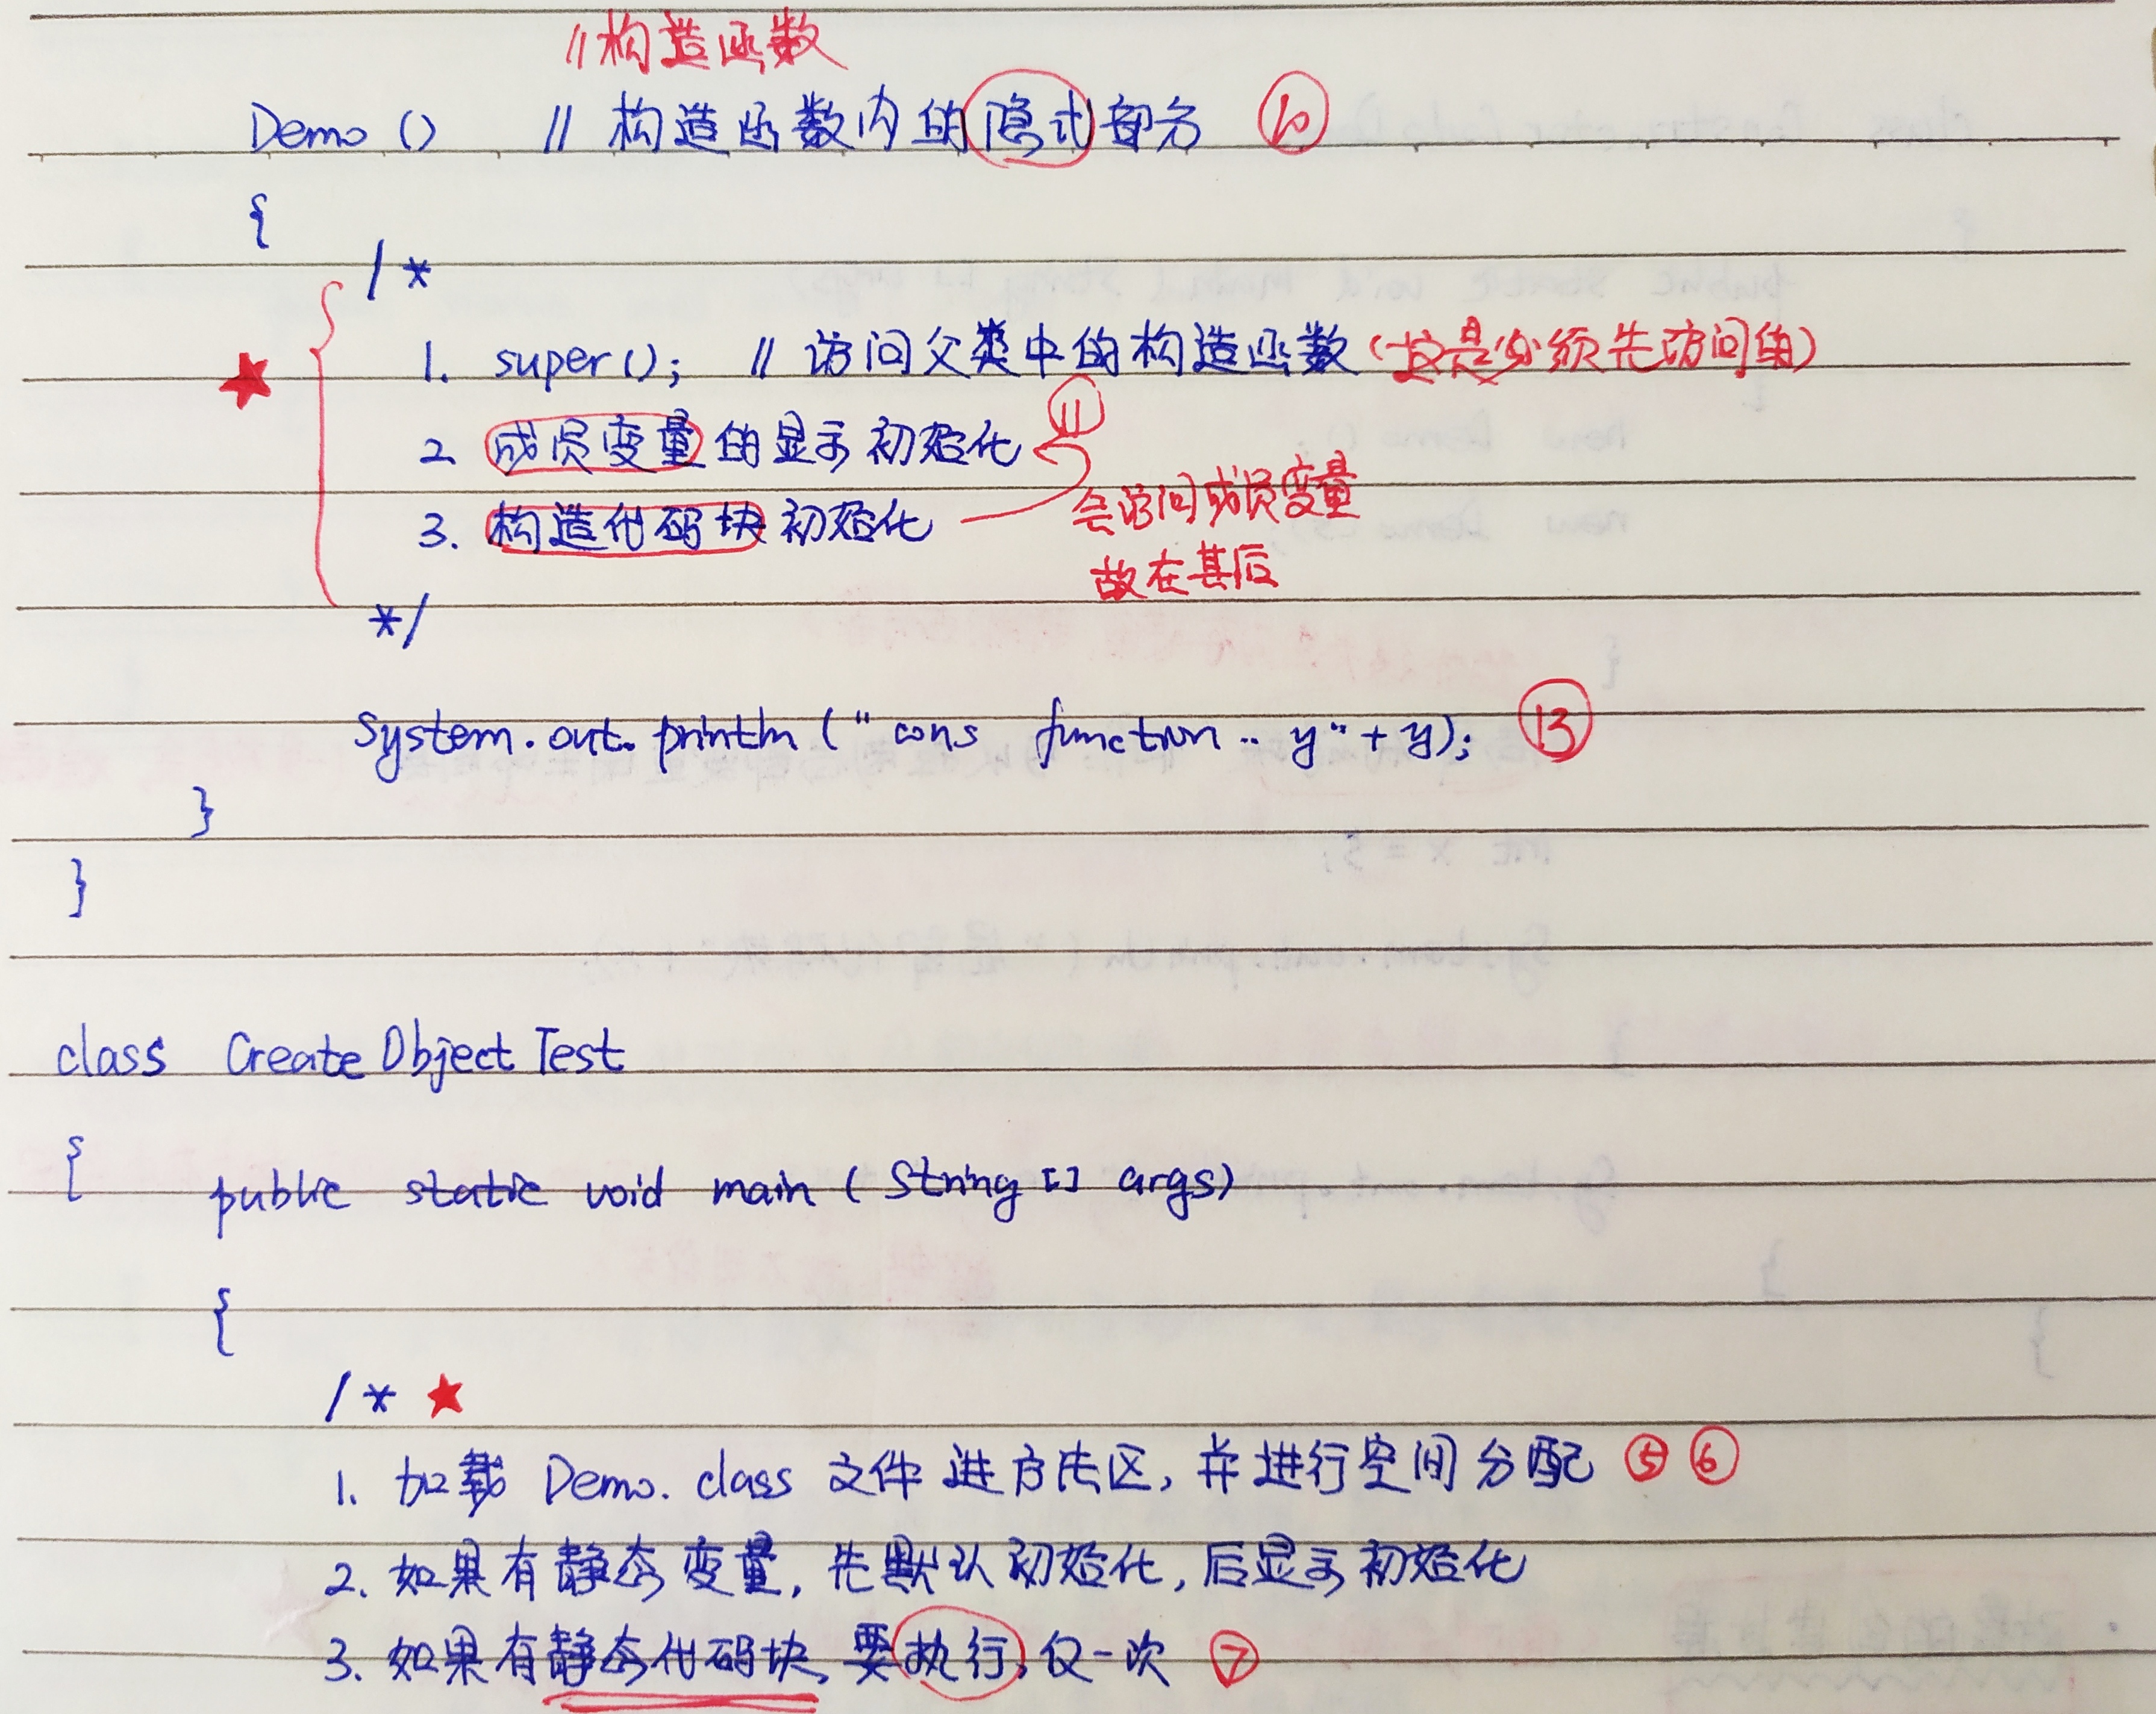 //构造函数
Demo () // 构造函数内的隐式部分 ⑩
{
/*
1. super(); // 访问父类中的构造函数 (这是必须先访问的)
2 成员变量的显示初始化 ⑪
3. 构造代码块初始化 会访问成员变量
故在其后
*/
System.out.println ("cons function .. y" + y); ⑬
}
}
class CreateObjectTest
{ public static void main (String [] args)
{
/* ★
1. 加载 Demo.class 文件进方法区, 并进行空间分配 ⑤ ⑥
2. 如果有静态变量, 先默认初始化, 后显示初始化
3. 如果有静态代码块, 要执行, 仅一次 ⑦